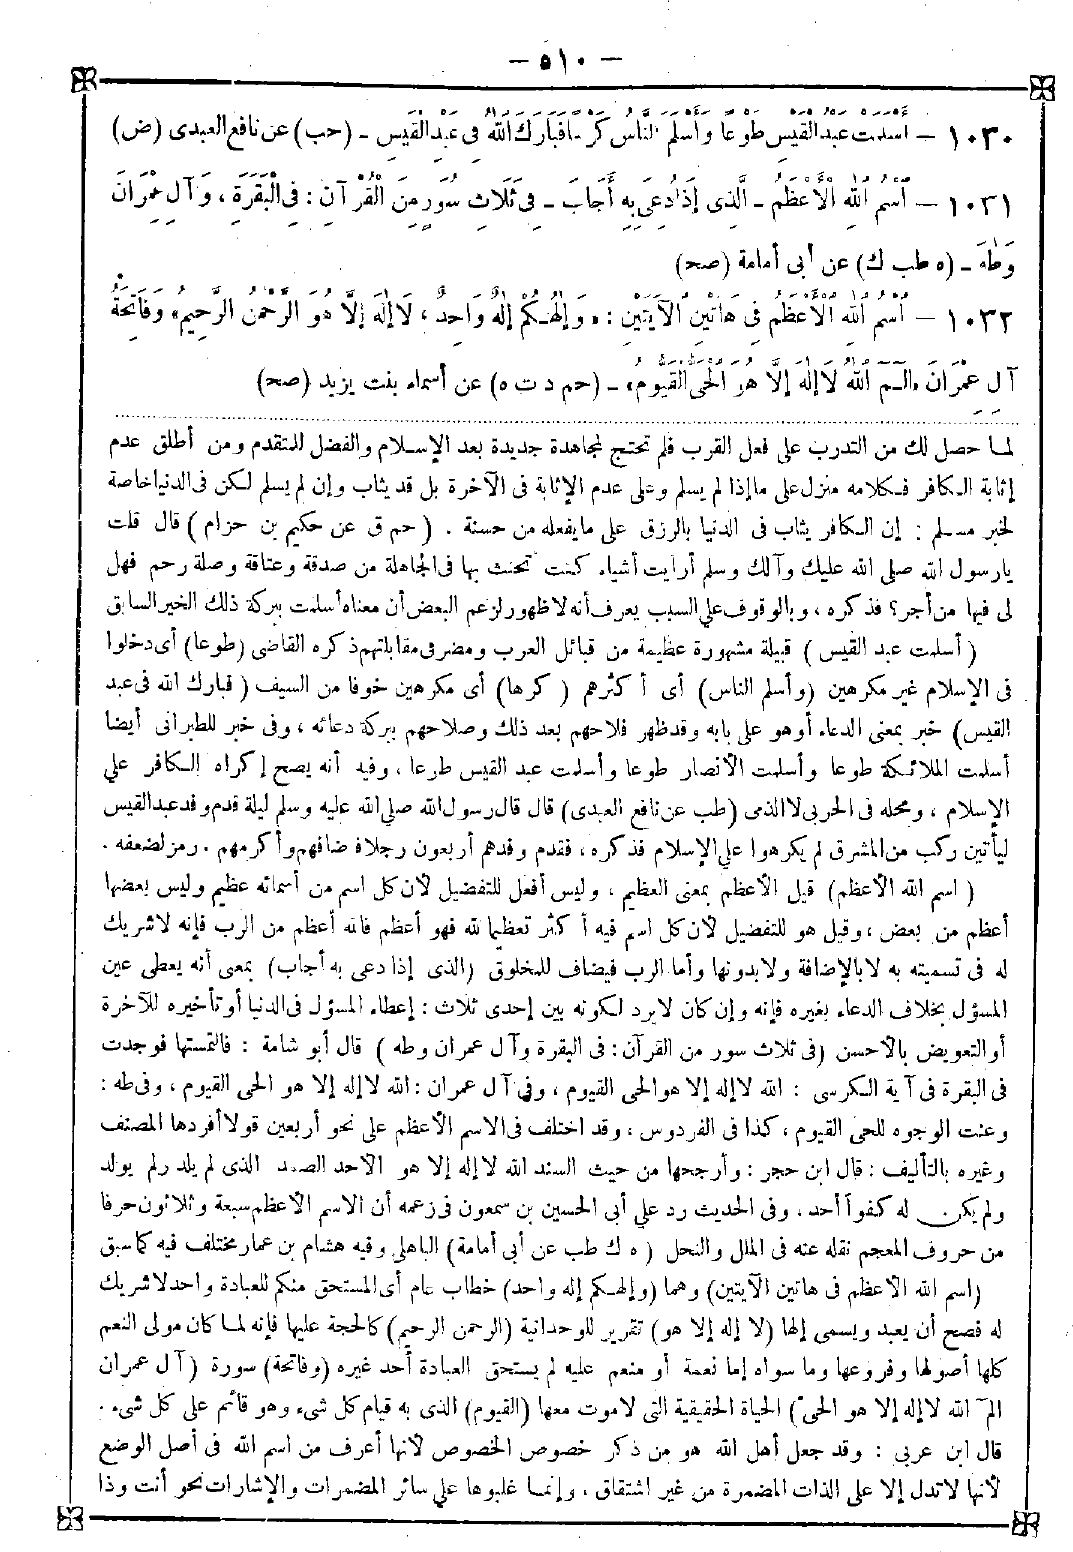 — ٥١٠ —
١٠٣٠ — أَسْلَمَتْ عَبْدُ الْقَيْسِ طَوْعًا وَأَسْلَمَ النَّاسُ كَرْهًا فَبَارَكَ اللهُ فِى عَبْدِ الْقَيْسِ - (حب) عن نافع العبدى (ض)
١٠٣١ — اَسْمُ اللهِ الْأَعْظَمُ - الَّذِى إِذَا دُعِىَ بِهِ أَجَابَ - فِى ثَلَاثِ سُوَرٍ مِنَ الْقُرْآنِ : فِى الْبَقَرَةِ ، وَآلِ عِمْرَانَ
وَطٰهَ - (ه طب ك) عن أبى أمامة (صح)
١٠٣٢ — اَسْمُ اللهِ الْأَعْظَمُ فِى هَاتَيْنِ الْآيَتَيْنِ : «وَإِلٰهُكُمْ إِلٰهٌ وَاحِدٌ ، لَا إِلٰهَ إِلَّا هُوَ الرَّحْمٰنُ الرَّحِيمُ» وَفَاتِحَةُ
آلِ عِمْرَانَ «الٓمٓ اللهُ لَا إِلٰهَ إِلَّا هُوَ الْحَىُّ الْقَيُّومُ» - (حم د ت ه) عن أسماء بنت يزيد (صح)
لما حصل لك من التدرب على فعل القرب فلم تحتج لمجاهدة جديدة بعد الإسلام والفضل للمتقدم ومن أطلق عدم
إثابة الكافر فكلامه منزل على ما إذا لم يسلم وعلى عدم الإثابة فى الآخرة بل قد يثاب وإن لم يسلم لكن فى الدنيا خاصة
لخبر مسلم : إن الكافر يثاب فى الدنيا بالرزق على ما يفعله من حسنة . (حم ق عن حكيم بن حزام) قال قلت
يا رسول الله صلى الله عليك وآلك وسلم أرأيت أشياء كنت أتحنث بها فى الجاهلة من صدقة وعتاقة وصلة رحم فهل
لى فيها من أجر؟ فذكره ، وبالوقوف على السبب يعرف أنه لا ظهور لزعم البعض أن معناه أسلمت ببركة ذلك الخير السابق
(أسلمت عبد القيس) قبيلة مشهورة عظيمة من قبائل العرب ومضر فى مقابلتهم ذكره القاضى (طوعا) أى دخلوا
فى الإسلام غير مكرهين (وأسلم الناس) أى أكثرهم (كرها) أى مكرهين خوفا من السيف (فبارك الله فى عبد
القيس) خبر بمعنى الدعاء أو هو على بابه وقد ظهر فلاحهم بعد ذلك وصلاحهم ببركة دعائه ، وفى خبر للطبرانى أيضا
أسلمت الملائكة طوعا وأسلمت الأنصار طوعا وأسلمت عبد القيس طوعا ، وفيه أنه يصح إكراه الكافر على
الإسلام ، ومحله فى الحربى لا الذمى (طب عن نافع العبدى) قال قال رسول الله صلى الله عليه وسلم ليلة قدم وفد عبد القيس
ليأتين ركب من المشرق لم يكرهوا على الإسلام فذكره ، فقدم وفدهم أربعون رجلا فأضافهم وأكرمهم . رمز لضعفه .
(اسم الله الأعظم) قيل الأعظم بمعنى العظيم ، وليس أفعل للتفضيل لأن كل اسم من أسمائه عظيم وليس بعضها
أعظم من بعض ، وقيل هو للتفضيل لأن كل اسم فيه أكثر تعظيما لله فهو أعظم فالله أعظم من الرب فإنه لا شريك
له فى تسميته به لا بالإضافة ولا بدونها وأما الرب فيضاف للمخلوق (الذى إذا دعى به أجاب) بمعنى أنه يعطى عين
المسؤل بخلاف الدعاء بغيره فإنه وإن كان لا يرد لكونه بين إحدى ثلاث : إعطاء المسؤل فى الدنيا أو تأخيره للآخرة
أو التعويض بالأحسن (فى ثلاث سور من القرآن : فى البقرة وآل عمران وطه) قال أبو شامة : فالتمستها فوجدت
فى البقرة فى آية الكرسى : الله لا إله إلا هو الحى القيوم ، وفى آل عمران : الله لا إله إلا هو الحى القيوم ، وفى طه :
وعنت الوجوه للحى القيوم ، كذا فى الفردوس ، وقد اختلف فى الاسم الأعظم على نحو أربعين قولا أفردها المصنف
وغيره بالتأليف : قال ابن حجر : وأرجحها من حيث السند الله لا إله إلا هو الأحد الصمد الذى لم يلد ولم يولد
ولم يكن له كفوا أحد ، وفى الحديث رد على أبى الحسين بن سمعون فى زعمه أن الاسم الأعظم سبعة وثلاثون حرفا
من حروف المعجم نقله عنه فى الملل والنحل (ه ك طب عن أبى أمامة) الباهلى وفيه هشام بن عمار مختلف فيه كما سبق
(اسم الله الأعظم فى هاتين الآيتين) وهما (وإلهكم إله واحد) خطاب عام أى المستحق منكم للعبادة واحد لا شريك
له فصح أن يعبد ويسمى إلها (لا إله إلا هو) تقرير للوحدانية (الرحمن الرحيم) كالحجة عليها فإنه لما كان مولى النعم
كلها أصولها وفروعها وما سواه إما نعمة أو منعم عليه لم يستحق العبادة أحد غيره (وفاتحة) سورة (آل عمران
الم الله لا إله إلا هو الحىّ) الحياة الحقيقية التى لا موت معها (القيوم) الذى به قيام كل شىء وهو قائم على كل شىء .
قال ابن عربى : وقد جعل أهل الله هو من ذكر خصوص الخصوص لأنها أعرف من اسم الله فى أصل الوضع
لأنها لا تدل إلا على الذات المضمرة من غير اشتقاق ، وإنما غلبوها على سائر المضمرات والإشارات نحو أنت وذا